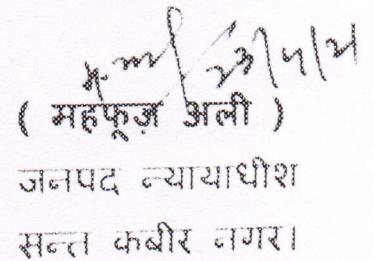 ( महफूज़ अली )
जनपद न्यायाधीश
सन्त कबीर नगर।